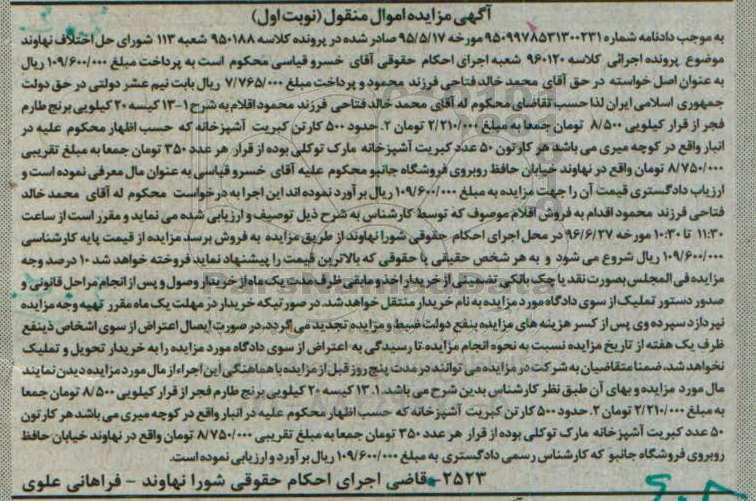 آگهی مزایده اموال منقول (نوبت اول)
به موجب دادنامه شماره ۹۵۰۹۹۷۸۵۳۱۳۰۰۲۳۱ مورخه ۹۵/۵/۱۷ صادر شده در پرونده کلاسه ۹۵۰۱۸۸ شعبه ۱۱۳ شورای حل اختلاف نهاوند
موضوع پرونده اجرائی کلاسه ۹۶۰۱۲۰ شعبه اجرای احکام حقوقی آقای خسرو قیاسی محکوم است به پرداخت مبلغ ۱۰۹/۶۰۰/۰۰۰ ریال
به عنوان اصل خواسته در حق آقای محمد خالد فتاحی فرزند محمود و پرداخت مبلغ ۷/۷۶۵/۰۰۰ ریال بابت نیم عشر دولتی در حق دولت
جمهوری اسلامی ایران لذا حسب تقاضای محکوم له آقای محمد خالد فتاحی فرزند محمود اقلام به شرح ۱-۱۳ کیسه ۲۰ کیلویی برنج طارم
فجر از قرار کیلویی ۸/۵۰۰ تومان جمعا به مبلغ ۲/۲۱۰/۰۰۰ تومان ۲. حدود ۵۰۰ کارتن کبریت آشپزخانه که حسب اظهار محکوم علیه در
انبار واقع در کوچه میری می باشد هر کارتون ۵۰ عدد کبریت آشپزخانه مارک توکلی بوده از قرار هر عدد ۳۵۰ تومان جمعا به مبلغ تقریبی
۸/۷۵۰/۰۰۰ تومان واقع در نهاوند خیابان حافظ روبروی فروشگاه جانبو محکوم علیه آقای خسرو قیاسی به عنوان مال معرفی نموده است و
ارزیاب دادگستری قیمت آن را جهت مزایده به مبلغ ۱۰۹/۶۰۰/۰۰۰ ریال برآورد نموده اند این اجرا به درخواست محکوم له آقای محمد خالد
فتاحی فرزند محمود اقدام به فروش اقلام موصوف که توسط کارشناس به شرح ذیل توصیف و ارزیابی شده می نماید و مقرر است از ساعت
۱۰:۳۰ تا ۱۱:۳۰ مورخه ۹۶/۶/۲۷ در محل اجرای احکام حقوقی شورا نهاوند از طریق مزایده به فروش برسد مزایده از قیمت پایه کارشناسی
۱۰۹/۶۰۰/۰۰۰ ریال شروع می شود و به هر شخص حقیقی یا حقوقی که بالاترین قیمت را پیشنهاد نماید فروخته خواهد شد ۱۰ درصد وجه
مزایده فی المجلس بصورت نقد یا چک بانکی تضمینی از خریدار اخذ و مابقی ظرف مدت یک ماه از خریدار وصول و پس از انجام مراحل قانونی و
صدور دستور تملیک از سوی دادگاه مورد مزایده به نام خریدار منتقل خواهد شد. در صورتیکه خریدار در مهلت یک ماه مقرر تهیه وجه مزایده
نپردازد سپرده وی پس از کسر هزینه های مزایده بنفع دولت ضبط و مزایده تجدید می گردد. در صورت ایصال اعتراض از سوی اشخاص ذینفع
ظرف یک هفته از تاریخ مزایده نسبت به نحوه انجام مزایده، تا رسیدگی به اعتراض از سوی دادگاه مورد مزایده را به خریدار تحویل و تملیک
نخواهد شد. ضمنا متقاضیان به شرکت در مزایده می توانند در مدت پنج روز قبل از مزایده با هماهنگی این اجراء از مال مورد مزایده دیدن نمایند
مال مورد مزایده و بهای آن طبق نظر کارشناس بدین شرح می باشد ۱.۱۳ کیسه ۲۰ کیلویی برنج طارم فجر از قرار کیلویی ۸/۵۰۰ تومان جمعا
به مبلغ ۲/۲۱۰/۰۰۰ تومان ۲. حدود ۵۰۰ کارتن کبریت آشپزخانه که حسب اظهار محکوم علیه در انبار واقع در کوچه میری می باشد هر کارتون
۵۰ عدد کبریت آشپزخانه مارک توکلی بوده از قرار هر عدد ۳۵۰ تومان جمعا به مبلغ تقریبی ۸/۷۵۰/۰۰۰ تومان واقع در نهاوند خیابان حافظ
روبروی فروشگاه جانبو که کارشناس رسمی دادگستری به مبلغ ۱۰۹/۶۰۰/۰۰۰ ریال برآورد و ارزیابی نموده است.
۲۵۲۳- قاضی اجرای احکام حقوقی شورا نهاوند - فراهانی علوی